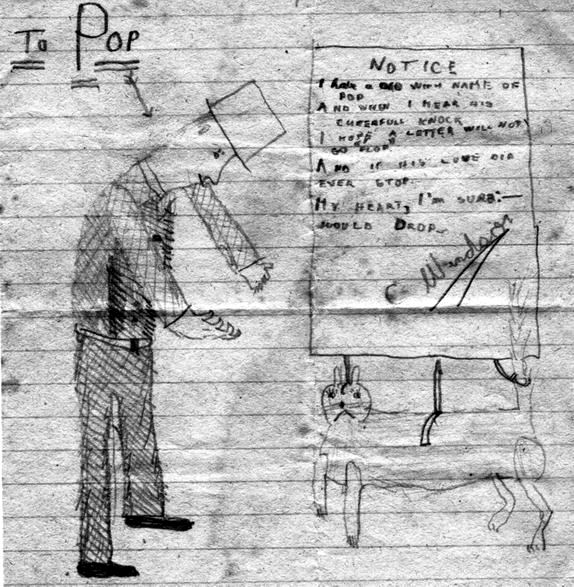 To POP
NOTICE
I have a DAD WITH NAME OF
POP
AND WHEN I HEAR HIS
CHEERFULL KNOCK
I HOPE A LETTER WILL NOT
GO FLOP
AND IF HIS LOVE DID
EVER STOP
MY HEART, I'M SURE:—
WOULD DROP
C Windsor